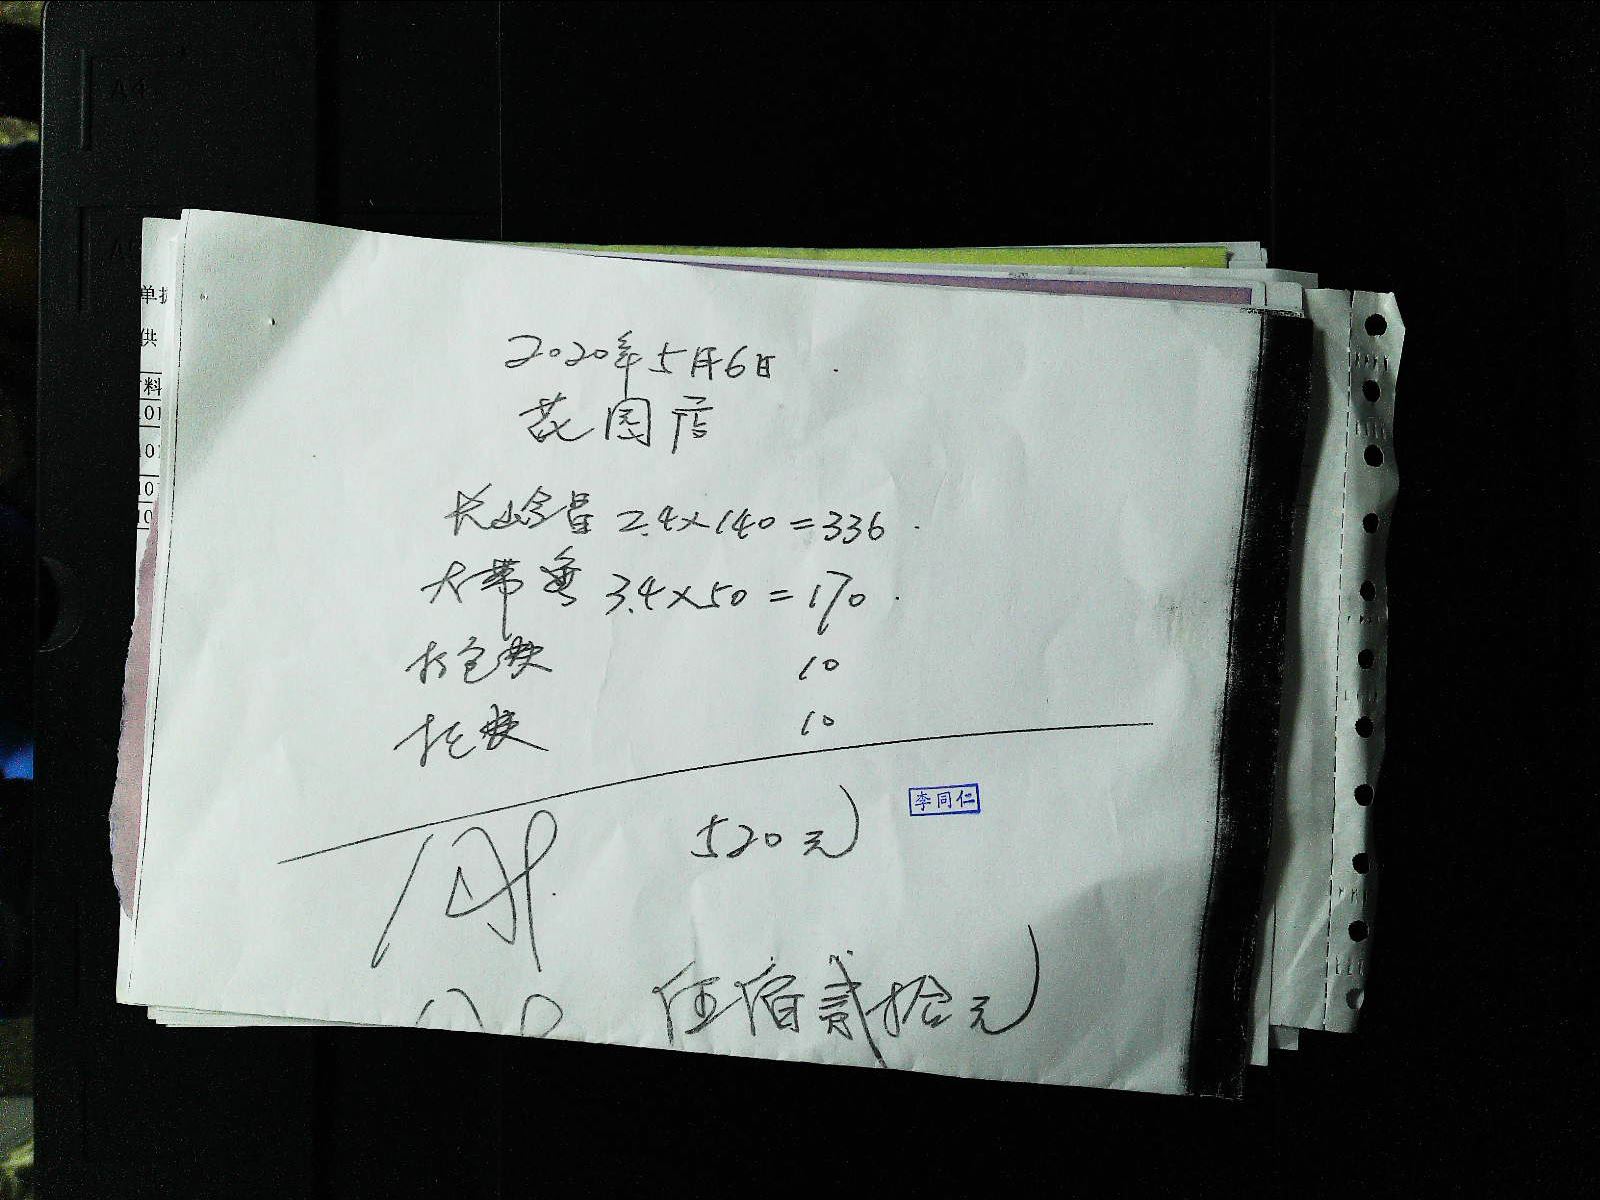 A4
A5
单据
供
料
01
01
0
10
2020年5月6日
花园店
长山仔昌 2.4×140=336
大带鱼 3.4×50=170
打包费 10
托费 10
520元
李同仁
伍佰贰拾元